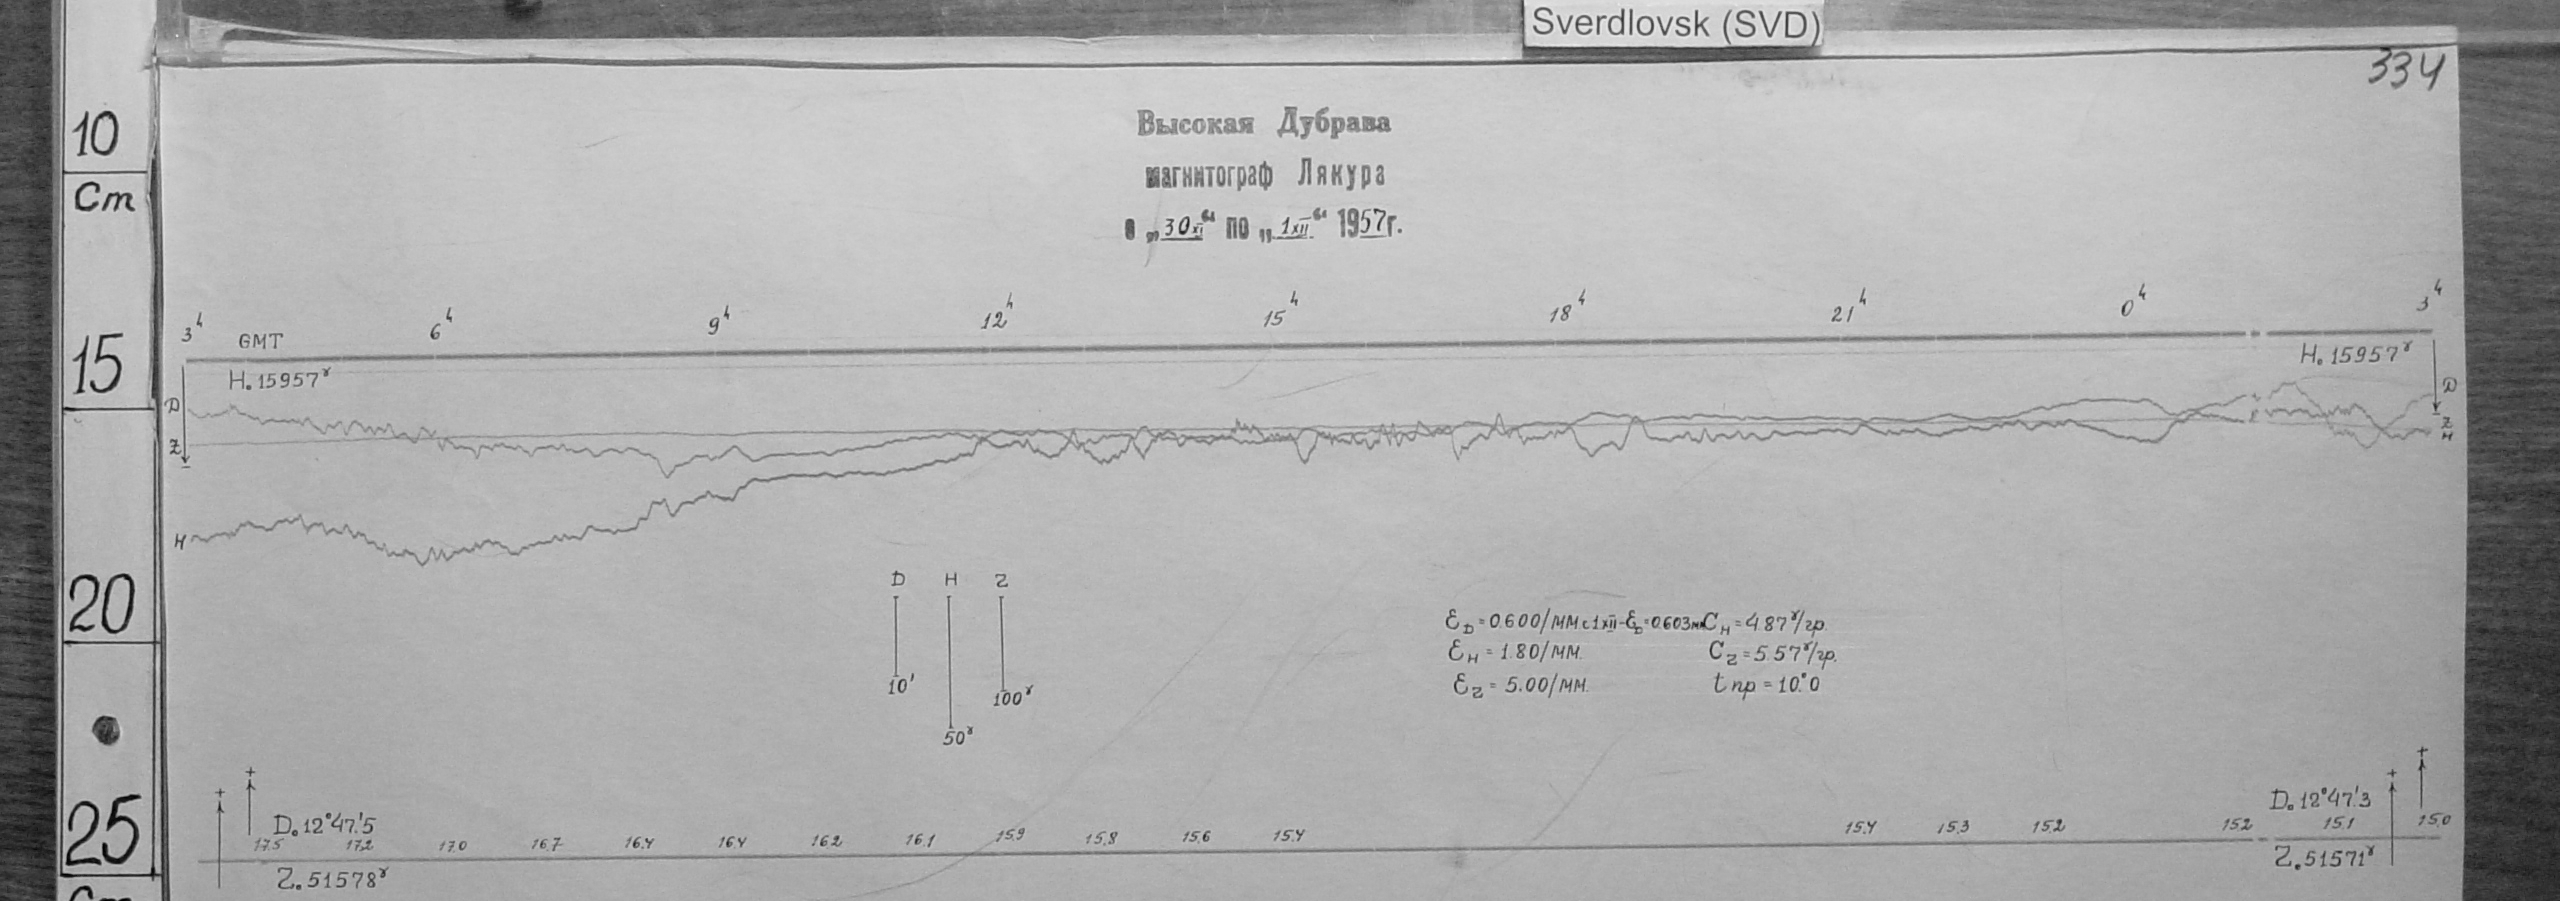 Sverdlovsk (SVD)
334
10
Cm
Высокая Дубрава
магнитограф Лякура
с „30 XI“ по „1 XII“ 1957г.
3ʰ 6ʰ 9ʰ 12ʰ 15ʰ 18ʰ 21ʰ 0ʰ 3ʰ
GMT
15
H₀ 15957ᵞ H₀ 15957ᵞ
D D
Z Z
H H
20
D H Z
10' 100ᵞ
50ᵞ
Ɛ_D = 0.600/мм с 1 XII - Ɛ_D = 0.603 мм C_H = 4.87ᵞ/гр.
Ɛ_H = 1.80/мм. C_Z = 5.57ᵞ/гр.
Ɛ_Z = 5.00/мм. t пр = 10.°0
25
+ + + +
D₀ 12°47.'5 D₀ 12°47.'3
17.5 17.2 17.0 16.7 16.4 16.4 16.2 16.1 15.9 15.8 15.6 15.4 15.4 15.3 15.2 15.2 15.1 15.0
Z₀ 51578ᵞ Z₀ 51571ᵞ
Cm